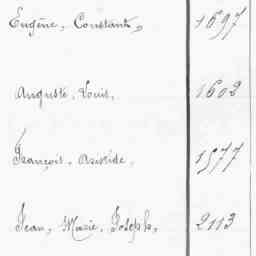 Eugène, Constant, 1697
Auguste, Louis, 1602
François, Aristide, 1577
Jean, Marie, Joseph, 2113